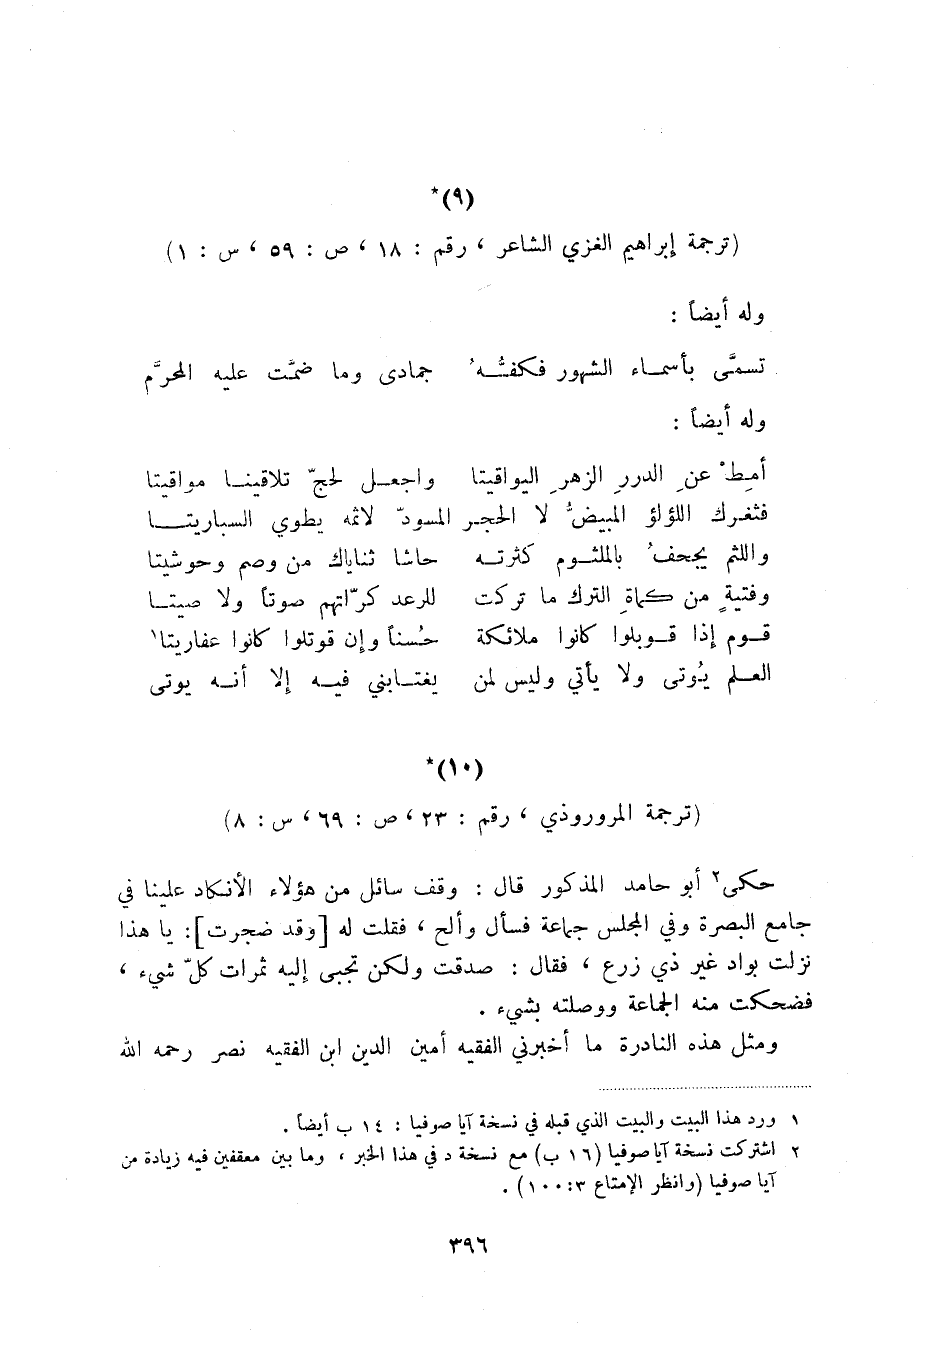 (٩)*
(ترجمة إبراهيم الغزي الشاعر ، رقم : ١٨ ، ص : ٥٩ ، س : ١)
وله أيضاً :
تسمَّى بأسمـاء الشهور فكفتُّـهُ جمادى وما ضمَّت عليه المحرَّم
وله أيضاً :
أمِطْ عن الدررِ الزهرِ اليواقيتا واجعـل لحجّ تلاقينـا مواقيتا
فثغرك اللؤلؤ المبيضُّ لا الحجـر المسودّ لاثمه يطوي السباريتـا
واللثم يجحفُ بالملثـوم كثرتـه حاشا ثناياك من وصم وحوشيتا
وفتيةٍ من كماةِ الترك ما تركت للرعد كرّاتهم صوتاً ولا صيتـا
قـوم إذا قـوبلوا كانوا ملائكة حُسناً وإن قوتلوا كانوا عفاريتا١
العلـم يُوتى ولا يأتي وليس لمن يغتـابني فيـه إلا أنـه يوتى
(١٠)*
(ترجمة المروروذي ، رقم : ٢٣ ، ص : ٦٩ ، س : ٨)
حكى٢ أبو حامد المذكور قال : وقف سائل من هؤلاء الأنكاد علينا في
جامع البصرة وفي المجلس جماعة فسأل وألح ، فقلت له [وقد ضجرت]: يا هذا
نزلت بواد غير ذي زرع ، فقال : صدقت ولكن تجبى إليه ثمرات كلّ شيء ،
فضحكت منه الجماعة ووصلته بشيء .
ومثل هذه النادرة ما أخبرني الفقيه أمين الدين ابن الفقيه نصر رحمه الله
١ ورد هذا البيت والبيت الذي قبله في نسخة آيا صوفيا : ١٤ ب أيضاً .
٢ اشتركت نسخة آيا صوفيا (١٦ ب) مع نسخة د في هذا الخبر ، وما بين معقفين فيه زيادة من
آيا صوفيا (وانظر الإمتاع ٣:١٠٠) .
٣٩٦